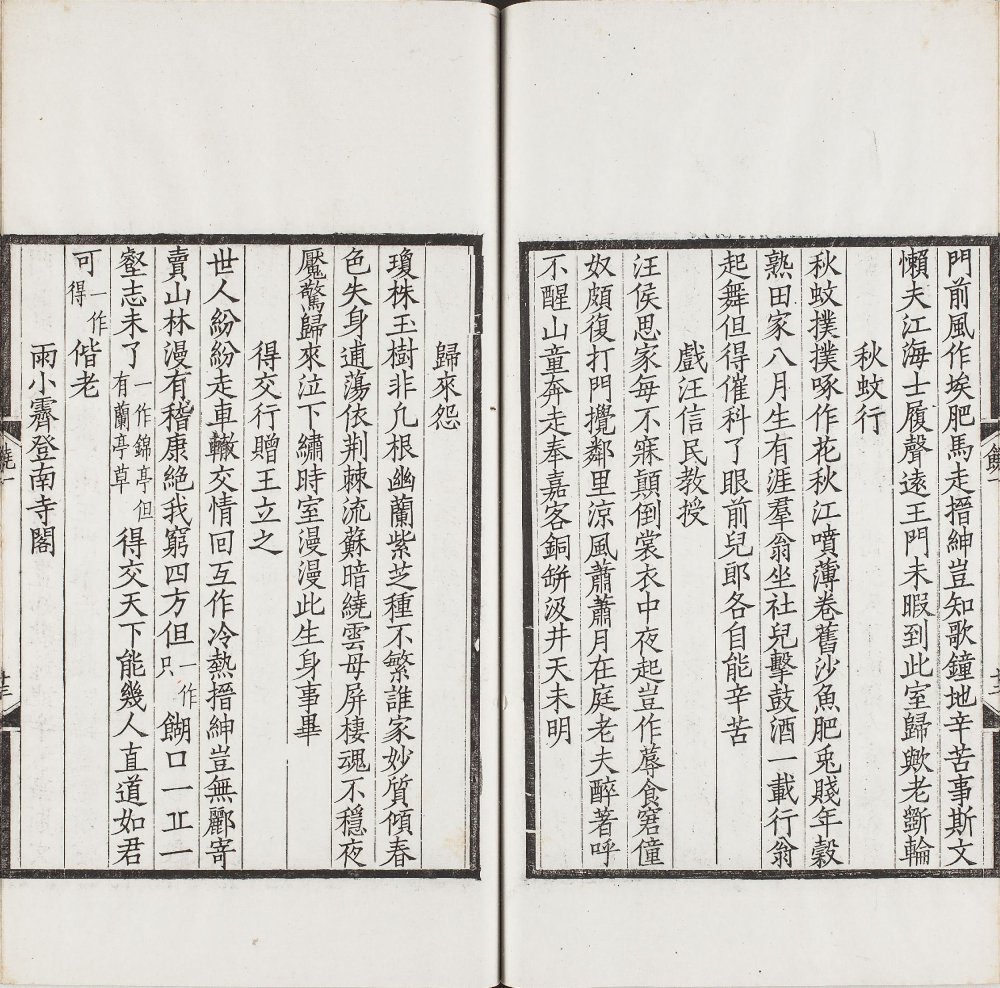 門前風作埃肥馬走搢紳豈知歌鐘地辛苦事斯文
懶夫江海士履聲遠王門未暇到此室歸歟老斲輪
秋蚊行
秋蚊撲撲啄作花秋江噴薄卷舊沙魚肥兎賤年穀
熟田家八月生有涯羣翁坐社兒擊鼓酒一載行翁
起舞但得催科了眼前兒郎各自能辛苦
戲汪信民教授
汪侯思家每不寐顛倒裳衣中夜起豈作蓐食窘僮
奴頗復打門攪鄰里涼風蕭蕭月在庭老夫醉著呼
不醒山童奔走奉嘉客銅缾汲井天未明
歸來怨
瓊株玉樹非凢根幽蘭紫芝種不繁誰家妙質傾春
色失身逋蕩依荆棘流蘇暗繞雲母屏棲魂不穩夜
魘驚歸來泣下繡時室漫漫此生身事畢
得交行贈王立之
世人紛紛走車轍交情回互作冷熱搢紳豈無酈寄
賣山林漫有嵇康絕我窮四方但一作只餬口一丘一
壑志未了一作錦亭但有蘭亭草得交天下能幾人直道如君
可一作得偕老
雨小霽登南寺閣